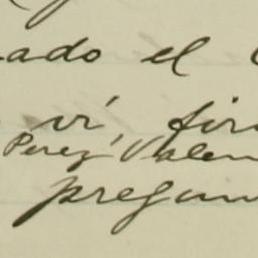 ado el
vi, fir
Perez Valen
pregun